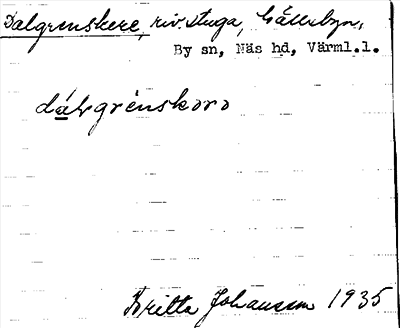 Dalgrenskere, riv. stuga, Gällebyn,
By sn, Näs hd, Värml.l.
dálgrénskoro
Britta Johansson 1935